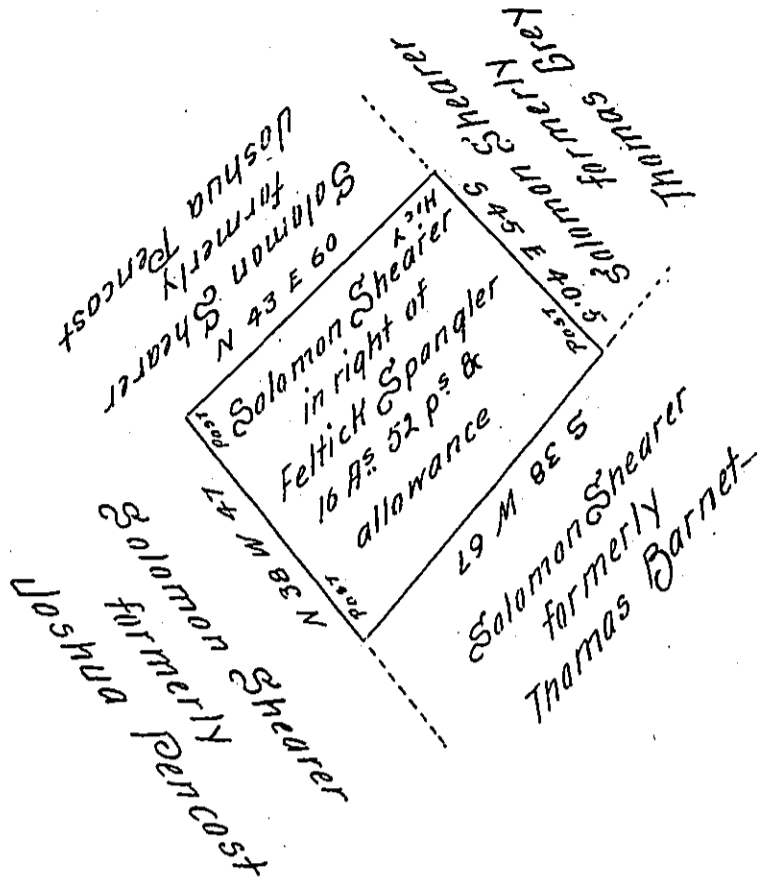 Joshua Pencost
formerly
Soloman Shearer
N 43 E 60
Thomas Grey
formerly
Solomon Shearer
S 45 E 40.5
Hic'y
Post
Solomon Shearer
in right of
Feltick Spangler
16 As. 52 ps &
allowance
Post
Post
N 38 W 47
S 38 W 67
Solomon Shearer
formerly
Joshua Pencost
Solomon Shearer
formerly
Thomas Barnet